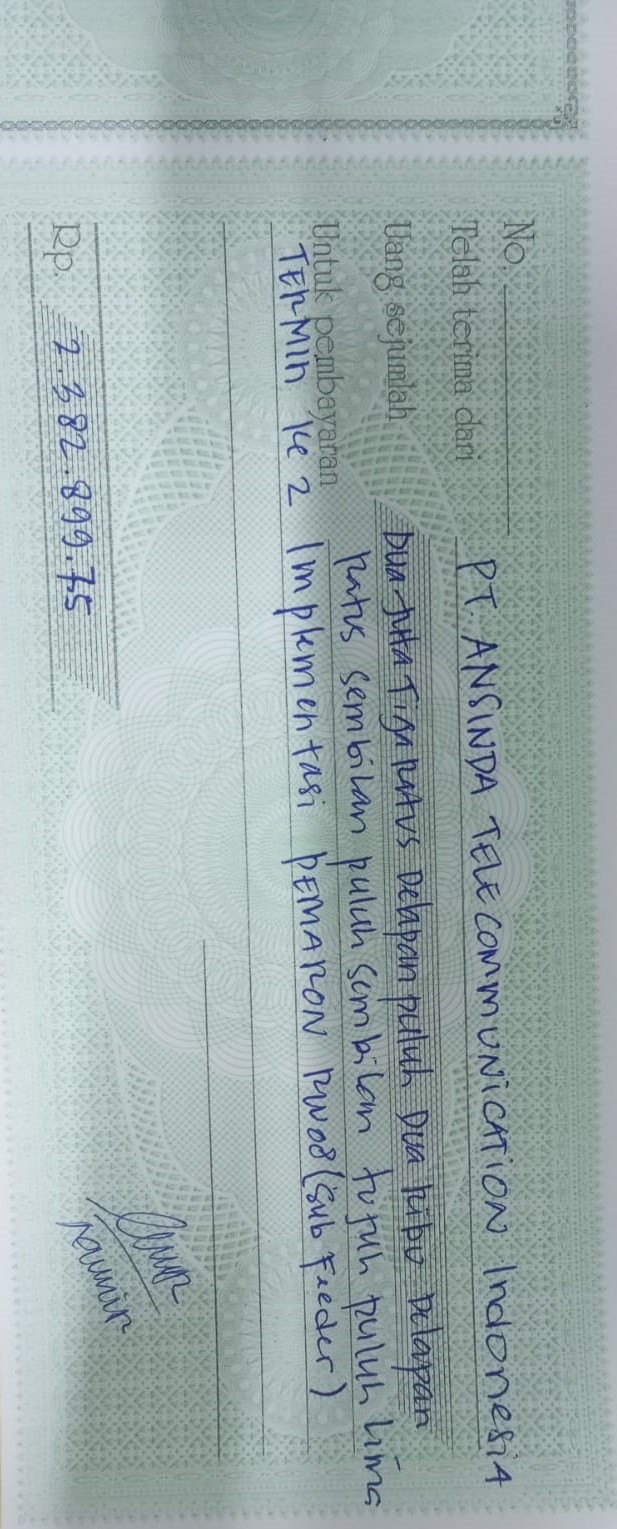 No.
Telah terima dari PT. ANSINDA TELECOMMUNiCATiON IndonesiA
Uang sejumlah Dua Juta Tiga Ratus Delapan puluh Dua Ribu Delapan
Ratus sembilan puluh sembilan tujuh puluh Lima
Untuk pembayaran
TERMIn Ke 2 Implementasi PEMARON RW08 (Sub Feeder)
Rp. 2.382.899.75